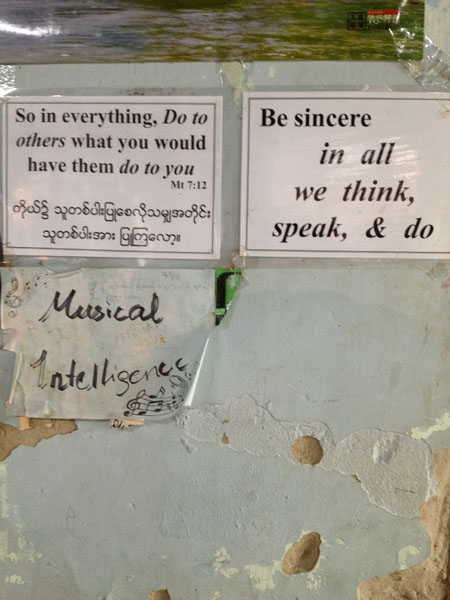 So in everything, Do to
others what you would
have them do to you
Mt 7:12
ကိုယ်၌ သူတစ်ပါးပြုစေလိုသမျှအတိုင်း
သူတစ်ပါးအား ပြုကြလော့။
Be sincere
in all
we think,
speak, & do
Musical
Intelligence